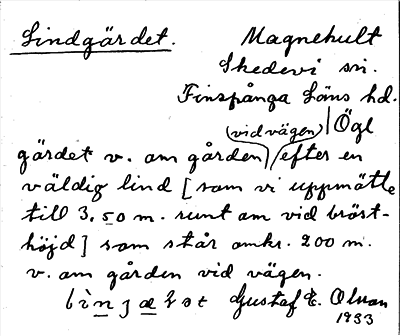 Lindgärdet. Magnehult
Skedevi sn.
Finspånga läns hd.
Ögl
(vid vägen)
gärdet v. om gården efter en
väldig lind [som vi uppmätte
till 3.50 m. runt om vid bröst-
höjd] som står omkr. 200 m.
v. om gården vid vägen.
Gustaf E. Olson
1933